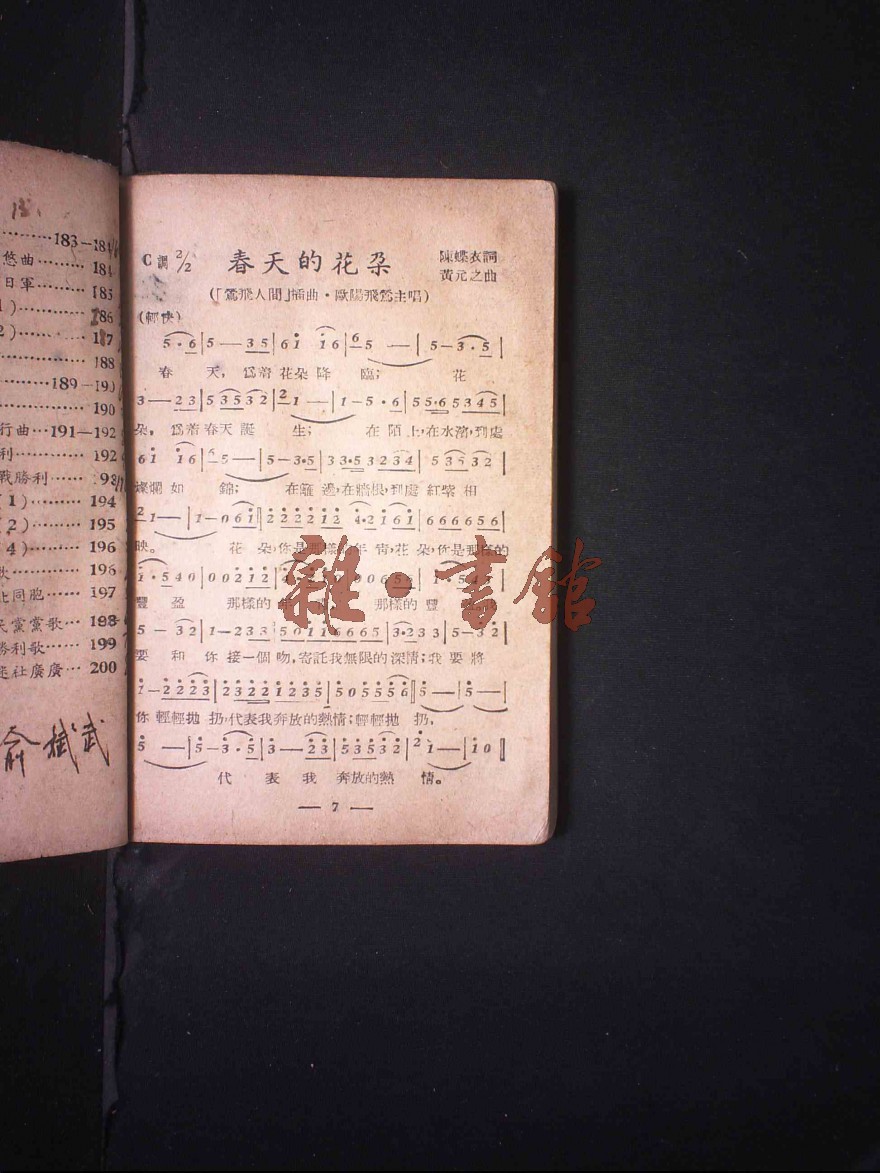 183—184
悠曲········· 184
日軍········· 185
1)·········· 186
2)·········· 187
············ 188
········189—190
············ 190
行曲···191—192
利·········· 192
戰勝利······ 193
(1)········ 194
(2)········ 195
(4)········ 196
歌·········· 196
北同胞······ 197
民黨黨歌··· 198
勝利歌······ 199
社廣廣··· 200
俞斌武
C調 2/2 春天的花朵
陳蝶衣詞
黃元之曲
(「鶯飛人間」插曲·歐陽飛鶯主唱)
(輕快)
5·6|5—35|6i i6|65—|5—3·5|
春 天, 爲着花朵降 臨; 花
3—23|53532|21—|1—5·6|55·65345|
朵, 爲着春天誕 生; 在陌上,在水濱,到處
6i i6|65—|5—3·5|33·53234|5353 2|
燦爛如 錦; 在籬邊,在牆根,到處紅紫相
21—|1—06i‖222212|4·2i6i|666656|
映。 花朵,你是那樣的年靑,花朵,你是那樣的
i·540|002i2|
豐盈 那樣的 那樣的豐
5—32|1—233|
要 和 你接一個吻,寄託我無限的深情;我要將
你輕輕拋扔,代表我奔放的熱情;輕輕拋扔,
代 表 我 奔放的熱 情。
— 7 —
雜·書館